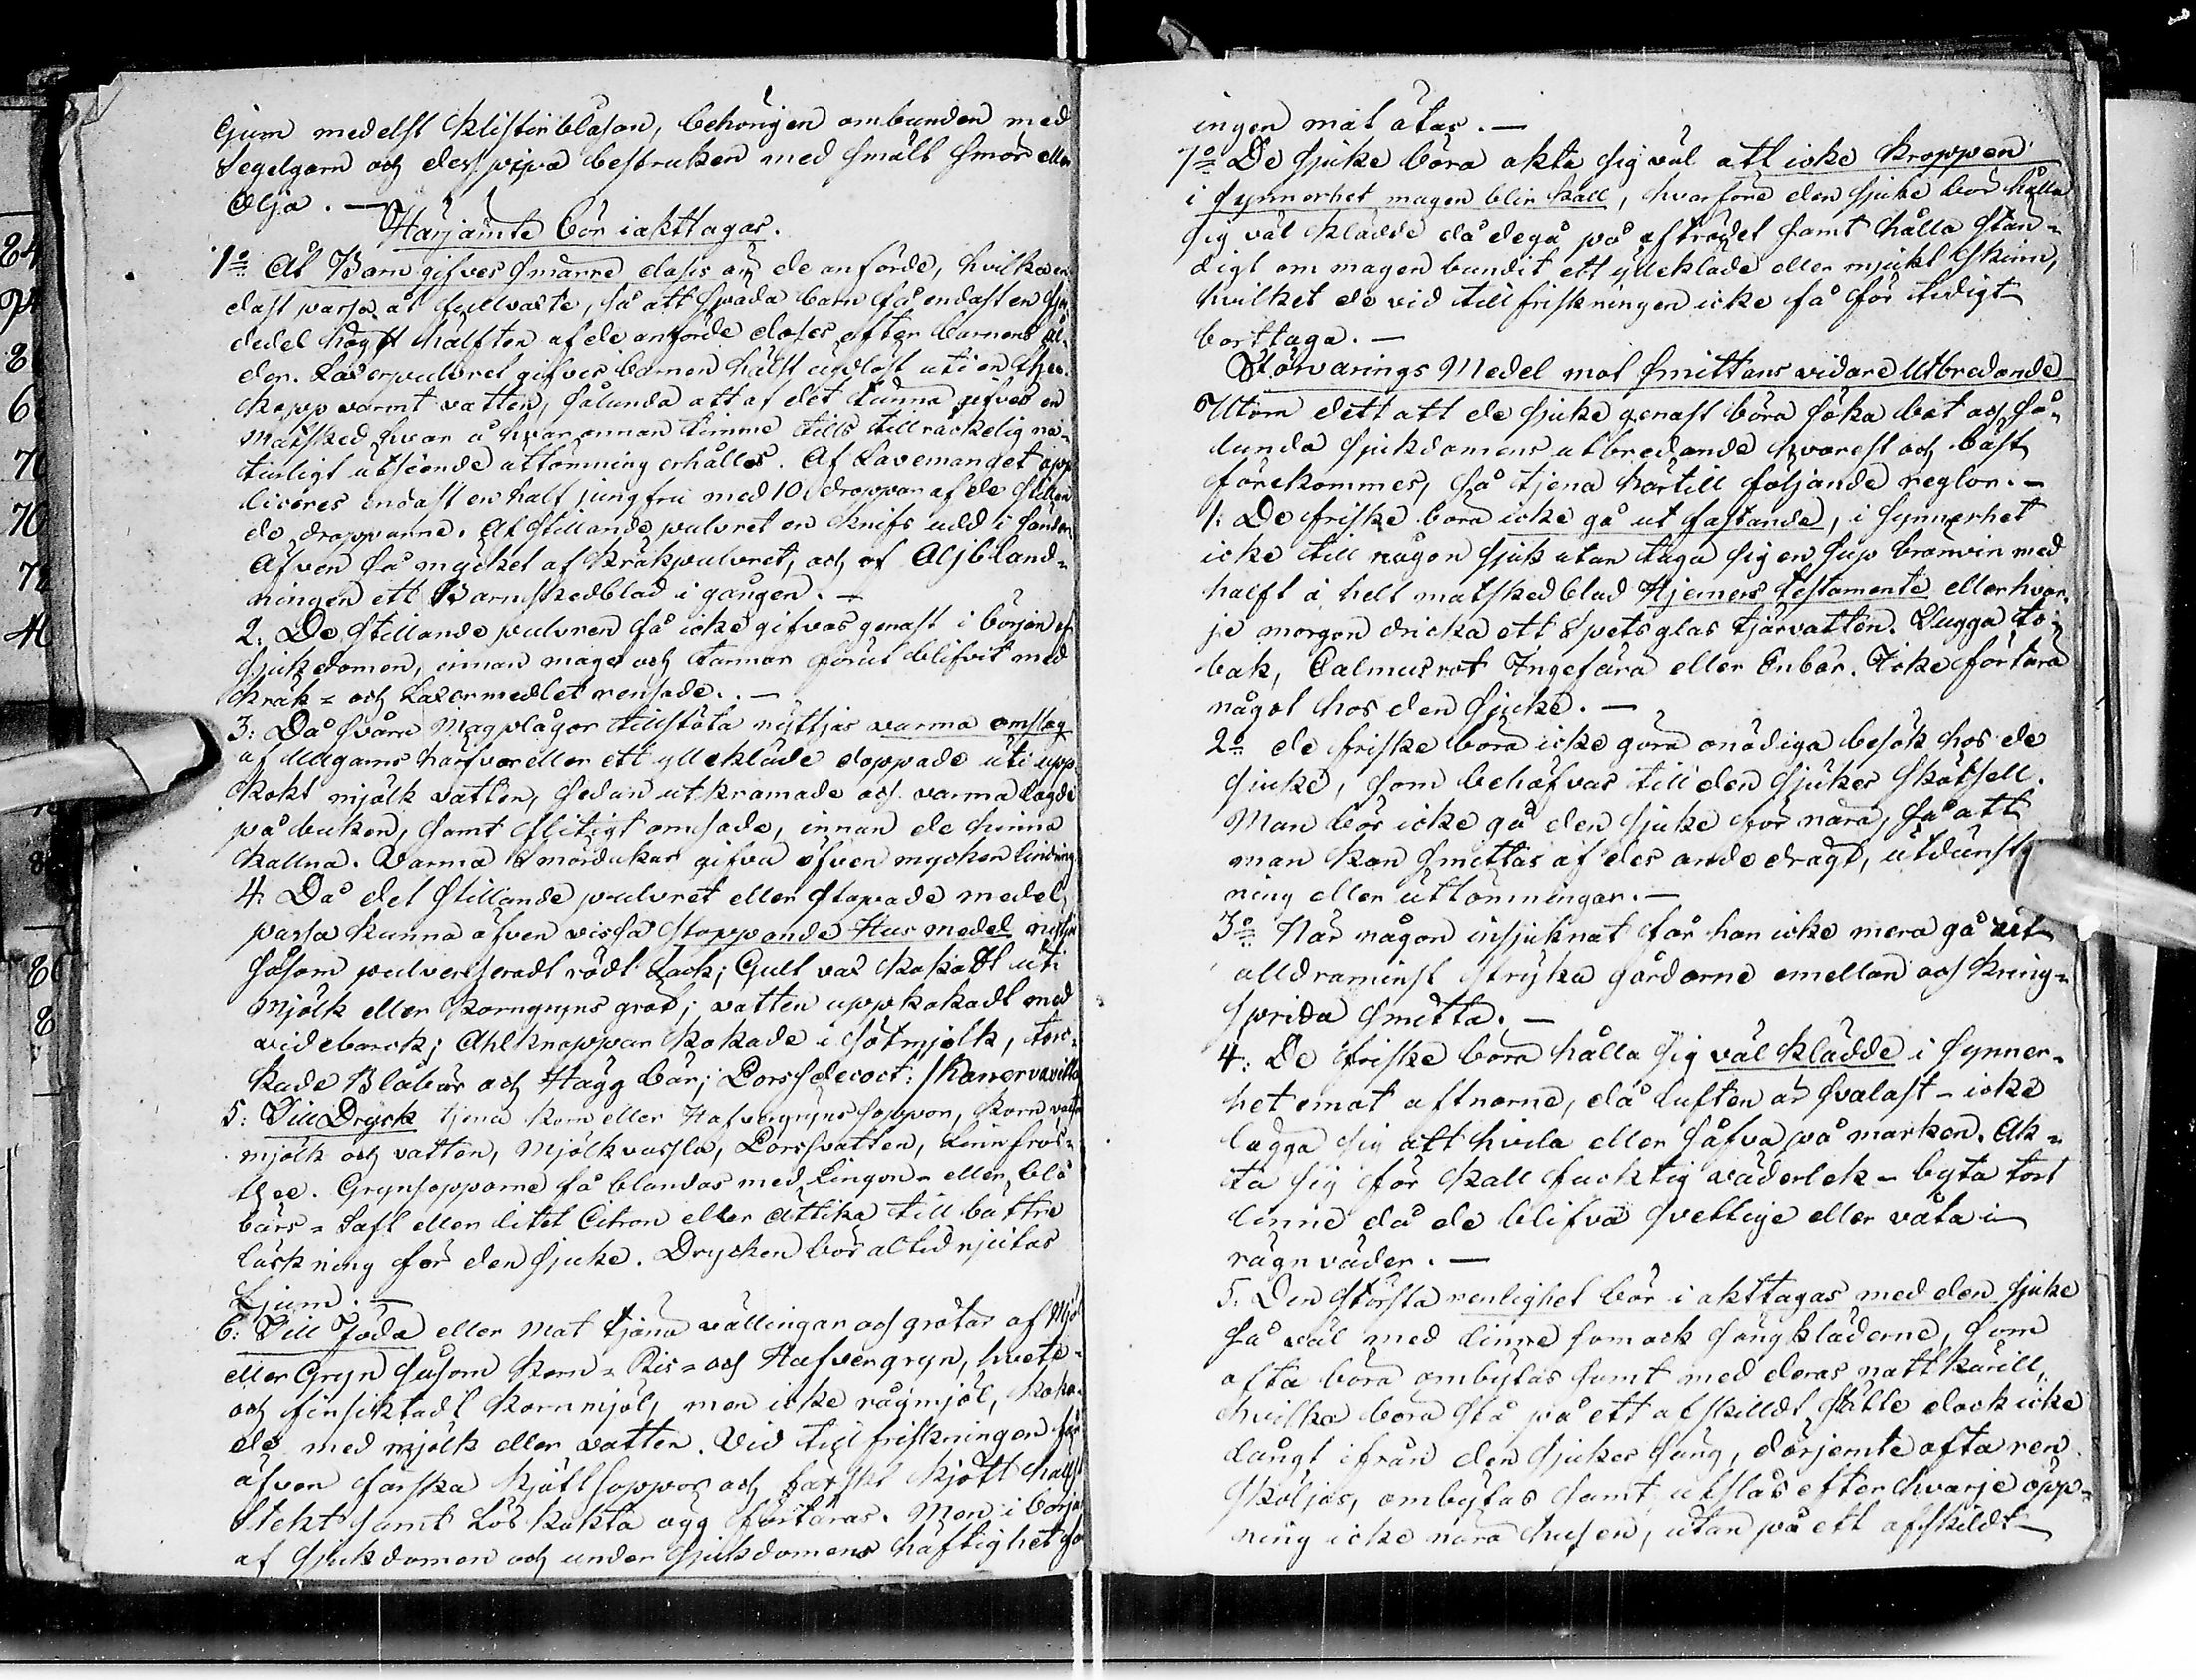 ljum medelst Klistirblåsan, behörigen ombunden med
Segelgarn och dess pipa bestruken med smält smör eller
Olja. —
Härjämte bör iakttagas.
1o At Barn gifves smärre doses än de anförde, hvilka en-
dast passa åt fullväxte, så att späda barn få endast en fjer
dedel högst hälften af de anförde doses efter barnens ål-
der. Laxerpulvret gifves barnen hälst upplöst uti en thee-
kopp varmt vatten, sålunda att af det tunna gifves en
Matsked hvar à hvarannan timme tills tillräckelig na-
turligt utseende uttömning erhålles. Af Lavemanget app
liceres endast en half jungfru med 10 droppar af de stillan
de dropparne. Af stillande pulvret en knifs udd i sönder
Äfven så mycket af kräkpulvret, och af Oljbland-
ningen ett Barnskedblad i gången. —
2. De stillande pulvren få icke gifvas genast i början af
Sjukdomen, innan mage och tarmar förut blifvit med
Kräk- och Laxermedlet rensade. —
3: Då svåra Magplågor tillstöta nyttjas varma omslag
af Ullgarns härfvor eller ett ylleklade doppade uti upp
kokt mjölk vatten, sedan utkramade och varma lagde
på buken, samt flitigt omsade, innan de hinna
kallna. Varma Smördukar gifva äfven mycken lindring
4: Då det stillande pulvret eller stopade medel
passa kunna äfven vissa stoppande Hus medel nyttjas
såsom pulveriseradt rödt Lack; Gult vax kokadt uti
Mjölk eller Korngryns gröt; vatten uppkokadt med
videbarck; Ahlknoppar kokade i sötmjölk, tor-
kade Blåbär och Hägg bär; Porssdecoct:
5: Till Dryck tjena Korn eller Hafvergryns soppor, Korn vatten
mjölk och vatten, Mjölkvassla, Porssvatten, Linnfrös-
thee. Grynsopporne få blandas med Lingon- eller blå
bärs-Saft eller litet Citron eller Ättika till bättre
läskning för den Sjuke. Drycken bör altid njutas
Ljum. —
6: Till Föda eller Mat tjäna vällingar och grötar af Mjöl
eller Gryn såsom Korn- Ris- och Hafvergryn, hvete-
och finsiktadt Kornmjöl, men icke rågmjöl, koka-
de med mjölk eller vatten. Vid tillfriskningen får
äfven färska Kjöttsoppor och färskt Kjött halfst
Stekt samt lös kokta ägg förtäras. Men i början
af Sjukdomen och under Sjukdomens häftighet
ingen mat ätas. —
7o De sjuke böra akta sig väl att icke kroppen
i synnerhet magen blir kall, hvarföre den sjuke bör hålla
sig väl klädde då de gå på afträdet samt hålla stän-
digt om magen bundit ett ylleklade eller mjukt Skinn,
hvilket de vid tillfriskningen icke få för tidigt
borttaga. —
Förvarings Medel mot Smittans vidare Utbredande
Utom dett att de sjuke genast böra söka bot och så-
lunda sjukdomens utbredande svarest och bäst
förekommes, så tjena härtill följande reglor. —
1: De friske böra icke gå ut fastande, i synnerhet
icke till någon sjuk utan taga sig en sup bränvin med
halft à helt matskedblad Hjernes testamente eller hvar-
je morgon dricka ett Spetsglas tjärvatten. Tugga to-
bak, Calmusrot Ingefära eller Enbär. Icke förtära
något hos den Sjuke. —
2o de friske böra icke göra onödiga besök hos de
sjuke, som behöfvas till den sjukes skötsell.
Man bör icke gå den sjuke för nära, så att
man kan smittas af des andedrägt, utdunst
ning eller uttömningar. —
3o När någon insjuknat får han icke mera gå ut
alldraminst stryka gårdarne emellan och kring-
sprida smitta. —
4: De friske böra hålla sig väl klädde i synner-
het emot aftnarne, då luften är svalast — icke
lägga sig att hvila eller såfva på marken. Ak-
ta sig för kall fucktig väderlek — byta tort
linne då de blifva svettige eller våta i
rägnväder. —
5. Den största renlighet bör i akttagas med den sjuke
så väl med linne som ock sängkläderne, som
ofta böra ombytas samt med deras nattkärill,
hvilka böra stå på ett afskilldt ställe dock icke
långt ifrån den sjukes säng, därjemte ofta ren
sköljas, ombytas samt utslås efter hvarje öpp-
ning icke nära husen, utan på ett afskildt